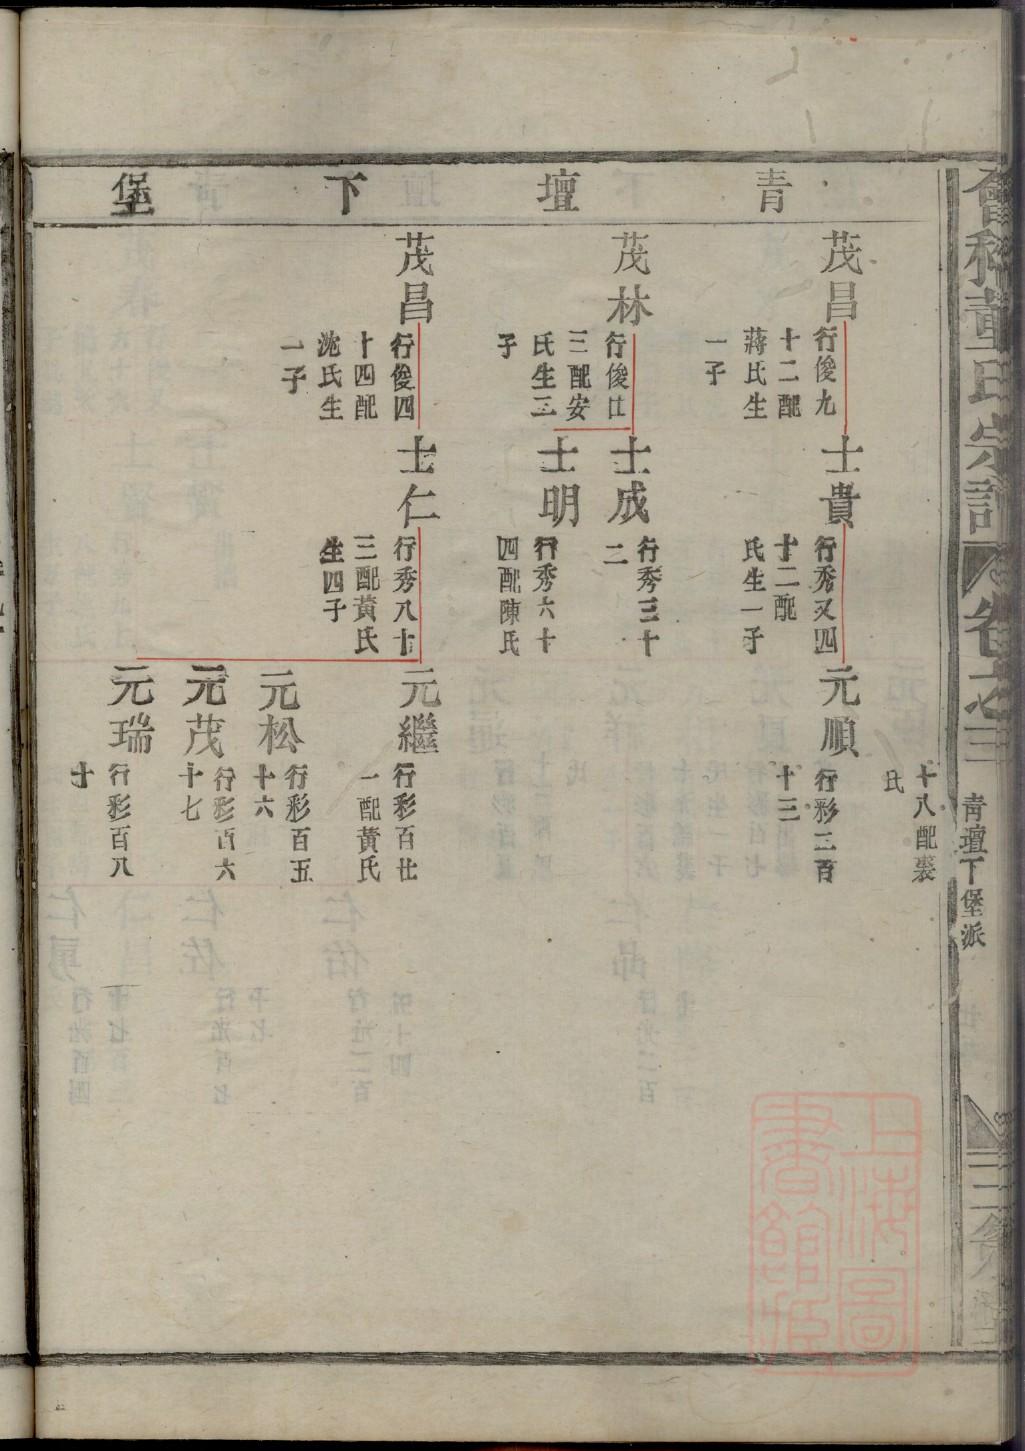 董氏宗譜
卷之三
青壇下堡派
青壇下堡
十八配裘
氏
茂昌
行俊九
十二配
蔣氏生
一子
士貴
行秀又四
十二配
氏生一子
元順
行彩三百
十三
茂林
行俊廿
三配安
氏生三
子
士成
行秀三十
二
士明
行秀六十
四配陳氏
茂昌
行俊四
十四配
沈氏生
一子
士仁
行秀八十
三配黃氏
生四子
元繼
行彩百廿
一配黃氏
元松
行彩百五
十六
元茂
行彩百六
十七
元瑞
行彩百八
十
上海圖
書館藏